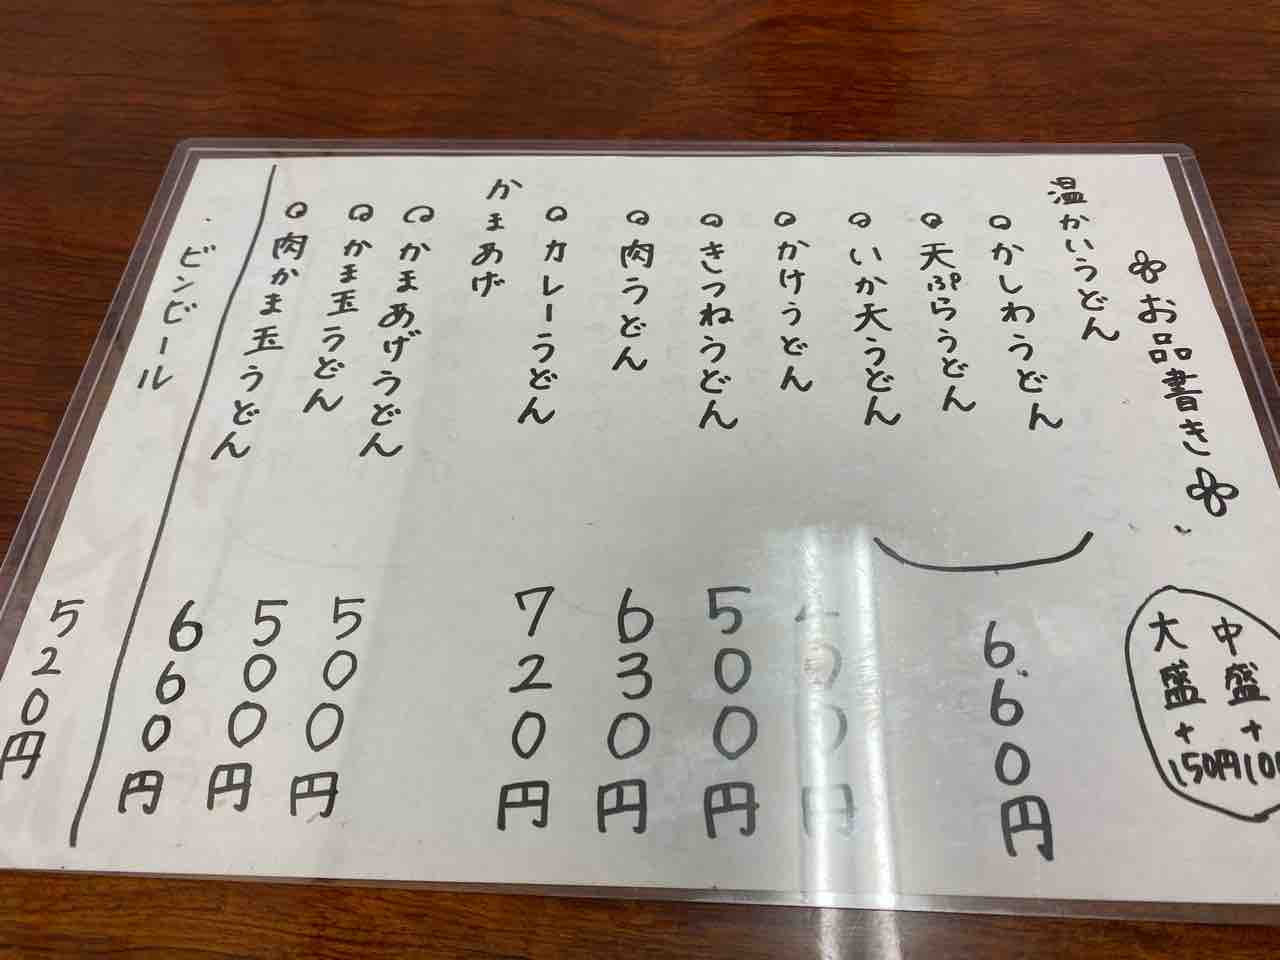 お品書き
中盛+
大盛+150円
温かいうどん
かしわうどん
天ぷらうどん
いか天うどん
660円
かけうどん
きつねうどん 500円
肉うどん 630円
カレーうどん 720円
かまあげ
かまあげうどん 500円
かま玉うどん 500円
肉かま玉うどん 660円
ビンビール 520円